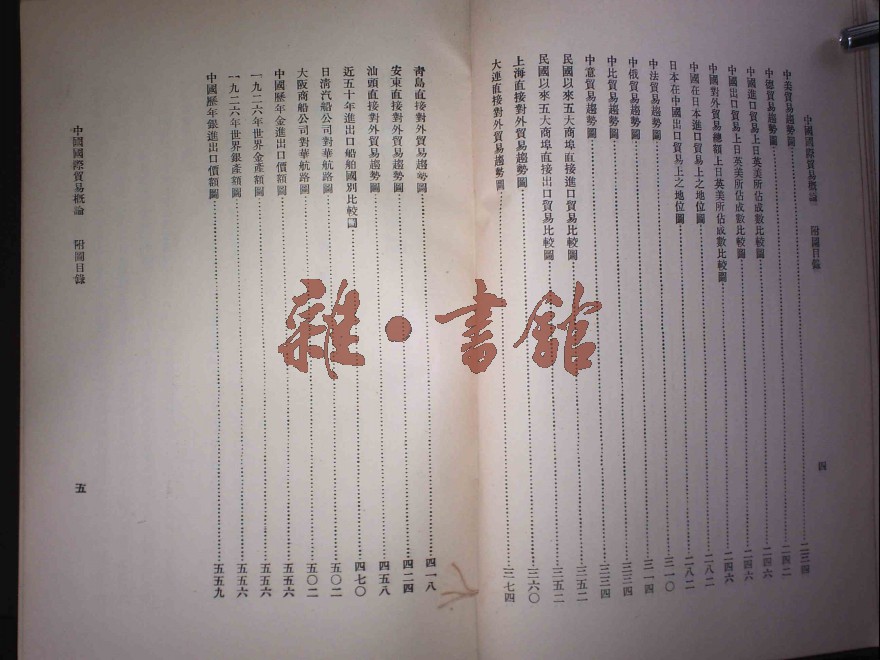 中國國際貿易概論 附圖目錄 四
中美貿易趨勢圖……二三四
中德貿易趨勢圖……二四二
中國進口貿易上日英美所佔成數比較圖……二四六
中國出口貿易上日英美所佔成數比較圖……二四六
中國對外貿易總額上日英美所佔成數比較圖……二四六
中國在日本進口貿易上之地位圖……二八二
日本在中國出口貿易上之地位圖……二八二
中法貿易趨勢圖……三一〇
中俄貿易趨勢圖……三一四
中比貿易趨勢圖……三三四
中意貿易趨勢圖……三三四
民國以來五大商埠直接進口貿易比較圖……三五二
民國以來五大商埠直接出口貿易比較圖……三五二
上海直接對外貿易趨勢圖……三六〇
大連直接對外貿易趨勢圖……三七四
青島直接對外貿易趨勢圖……四一八
安東直接對外貿易趨勢圖……四二四
汕頭直接對外貿易趨勢圖……四五八
近五十年進出口船舶國別比較圖……四七〇
日清汽船公司對華航路圖……五〇二
大阪商船公司對華航路圖……五〇二
中國歷年金進出口價額圖……五五六
一九二六年世界金產額圖……五五六
一九二六年世界銀產額圖……五五六
中國歷年銀進出口價額圖……五五九
中國國際貿易概論 附圖目錄 五
雜·書館